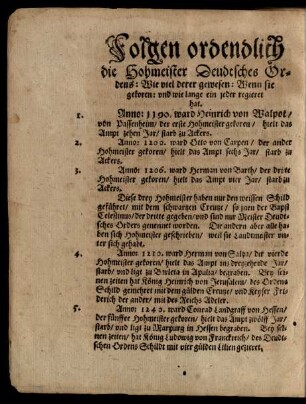 Folgen ordendlich
die Hohmeister Deudtsches Or-
dens: Wie viel derer gewesen: Wenn sie
gekoren: und wie lange ein jeder regiert
hat.
1. Anno: 1190. ward Heinrich von Walpot/
von Passenheim/ der erste Hohmeister gekoren/ hielt das
Ampt zehen Jar/ starb zu Ackers.
2. Anno: 1200. ward Otto von Carpen/ der ander
Hohmeister gekoren/ hielt das Ampt sechs Jar/ starb zu
Ackers.
3. Anno: 1206. ward Herman von Barth/ der dritte
Hohmeister gekoren/ hielt das Ampt vier Jar/ starb zu
Ackers.
Diese drey Hohmeister haben nur den weissen Schild
geführet/ mit dem schwartzen Creutze/ so jnen der Bapst
Celestinus/ der dritte gegeben/ und sind nur Meister Deudt-
sches Ordens genennet worden. Die andern aber alle ha-
ben sich Hohmeister geschrieben/ weil sie Landtmeister un-
ter sich gehabt.
4. Anno: 1210. ward Herman von Saltza/ der vierde
Hohmeister gekoren/ hielt das Ampt in dreyzehende Jar/
starb/ und ligt zu Barleta in Apulia/ begraben. Bey sei-
nen zeiten hat König Heinrich von Jerusalem/ des Ordens
Schild geziehret mit dem gülden Creutze/ und Keyser Fri-
dterich der ander/ mit des Reichs Adeler.
5. Anno: 1240. ward Conrad Landgraff von Hessen/
der fünffte Hohmeister gekoren/ hielt das Ampt zwölff Jar/
starb/ und ligt zu Marpurg in Hessen begraben. Bey sei-
nen zeiten/ hat König Ludowig von Franckreich/ des Deudt-
schen Ordens Schildt mit vier gülden Lilien gezieret.